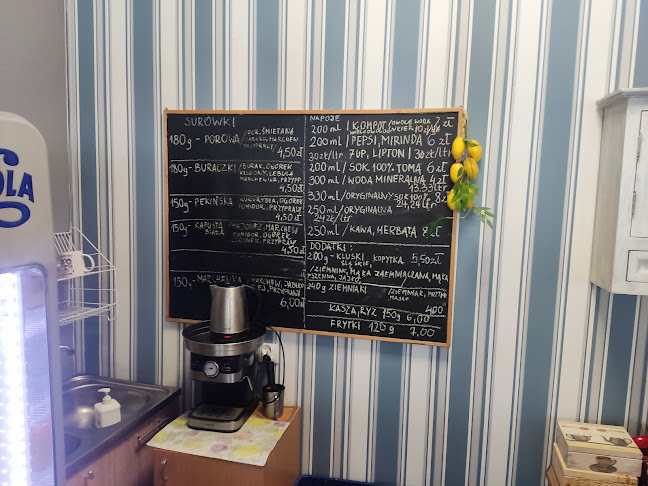 OLA
SURÓWKI
180g - POROWA / POR, ŚMIETANA
MARCHEW
4,50zł
180g - BURACZKI / BURAK, OGÓREK
KISZONY, CEBULA
MARCHEWKA, PRZYPR.
4,50zł
150g - PEKIŃSKA KUKURYDZA, OGÓREK
POMIDOR, PRZYPRAWY
4,50zł
150g - KAPUSTA BIAŁA / MAJONEZ, MARCHEW
POMIDOR, OGÓREK
PRZYPRAWY
4,50zł
150g - MARCHEWKA / MARCHEW, JABŁKO
PRZYPRAWY
6,00zł
NAPOJE
200ml / KOMPOT / OWOCE WODA 2 zł
CUKIER 10zł/ltr
200ml / PEPSI, MIRINDA 6 zł
30zł/ltr 7UP, LIPTON 30zł/ltr
200ml / SOK 100% TOMA 6 zł
300ml / WODA MINERALNA 4 zł
13.33/ltr
330ml / ORYGINALNY SOK 100% 8zł
24,24 ltr
250ml / ORYGINALNA
24zł/ltr
250ml / KAWA, HERBATA zł
DODATKI:
200g - KLUSKI ŚLĄSKIE, KOPYTKA 5,50zł
/ZIEMNIAKI, MĄKA ZIEMNIACZANA, MĄKA
PSZENNA, JAJKO
240g ZIEMNIAKI / ZIEMNIAK,
MASŁO
4,00
KASZA, RYŻ 150g 6,00
FRYTKI 125g 7,00